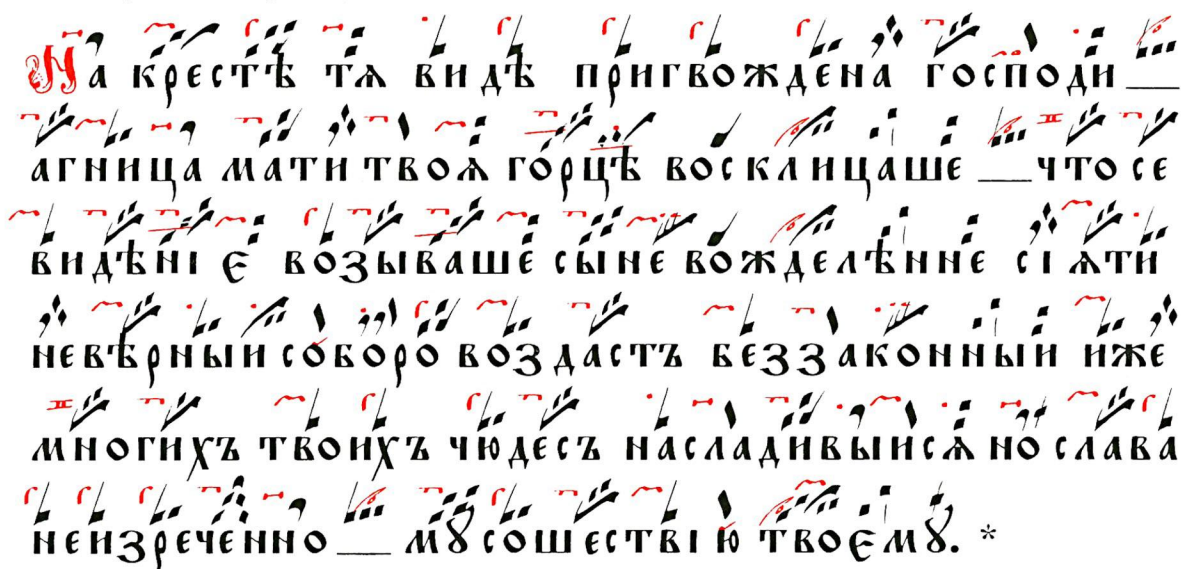 На крестѣ тѧ видѣ пригвождена господи
агница мати твоѧ горцѣ восклицаше что се
видѣнїе возываше сыне вожделѣнне сїѧ ти
невѣрныи соборо воздастъ беззаконныи иже
многихъ твоихъ чюдесъ насладивыисѧ но слава
неизреченномꙋ сошествїю твоемꙋ. *